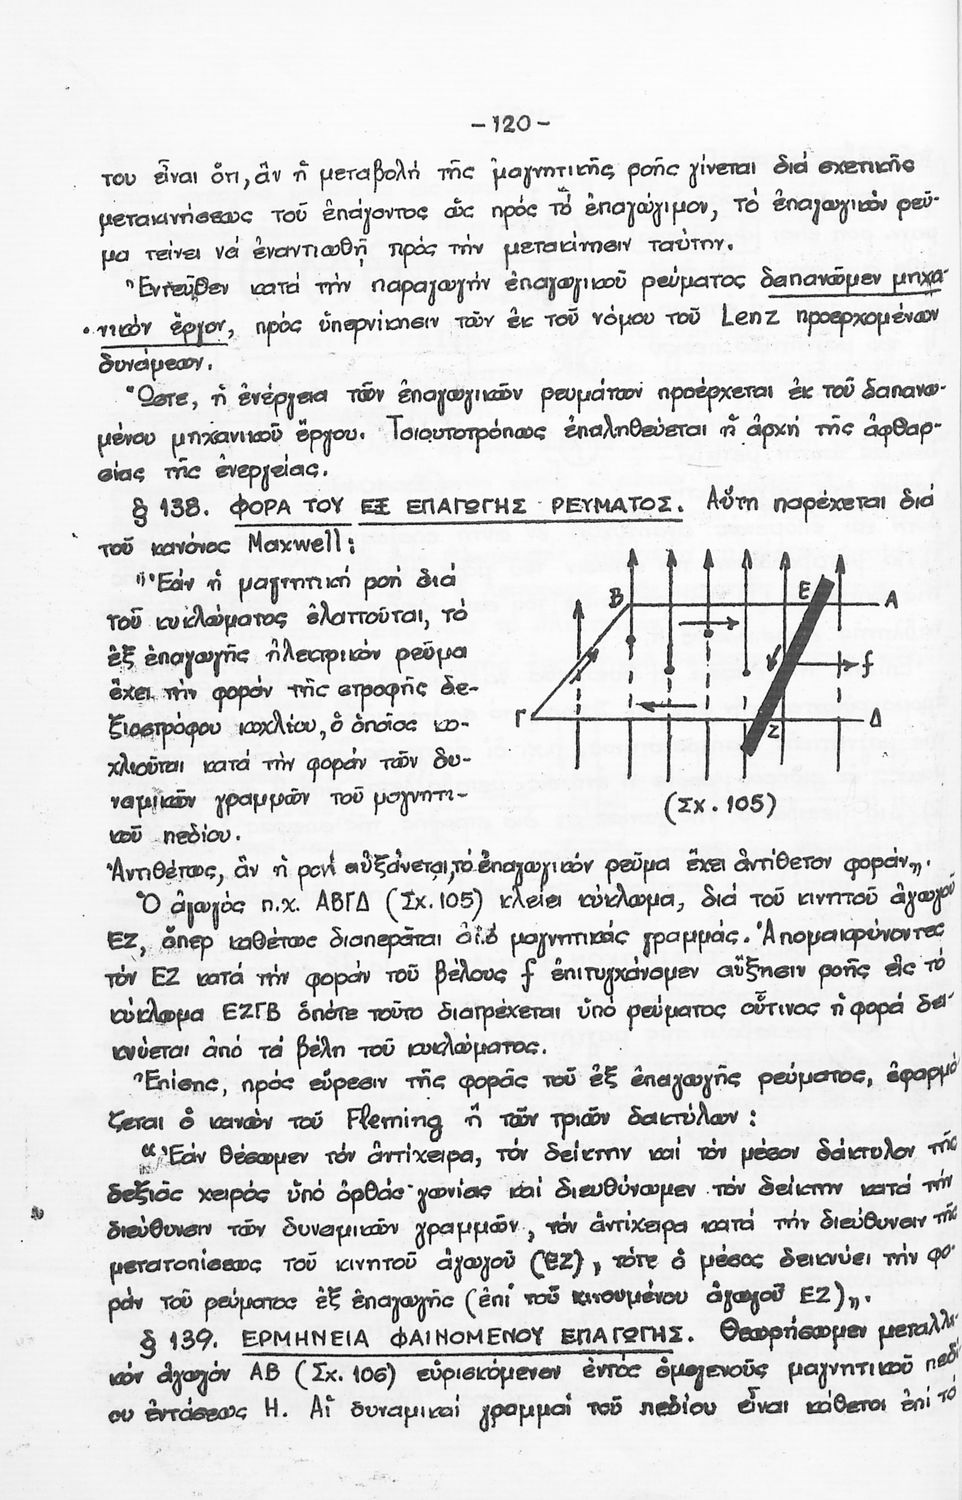 -120-
του εἶναι ὅτι, ἂν ἡ μεταβολή τῆς μαγνητικῆς ροῆς γίνεται διά σχετικῆς
μετακινήσεως τοῦ ἐπάγοντος ὡς πρός τὸ ἐπαγώγιμον, τὸ ἐπαγωγικόν ρεῦ-
μα τείνει νά ἐναντιωθῇ πρός τήν μετακίνησιν ταύτην.
Ἐντεῦθεν κατά τήν παραγωγήν ἐπαγωγικοῦ ρεύματος δαπανῶμεν μηχα-
νικόν ἔργον, πρός ὑπερνίκησιν τῶν ἐκ τοῦ νόμου τοῦ Lenz προερχομένων
δυνάμεων.
Ὥστε, ἡ ἐνέργεια τῶν ἐπαγωγικῶν ρευμάτων προέρχεται ἐκ τοῦ δαπανω-
μένου μηχανικοῦ ἔργου. Τοιουτοτρόπως ἐπαληθεύεται ἡ ἀρχή τῆς ἀφθαρ-
σίας τῆς ἐνεργείας.
§ 138. ΦΟΡΑ ΤΟΥ ΕΞ ΕΠΑΓΩΓΗΣ ΡΕΥΜΑΤΟΣ. Αὕτη παρέχεται διά
τοῦ κανόνος Maxwell:
"Ἐάν ἡ μαγνητική ροή διά
τοῦ κυκλώματος ἐλαττοῦται, τό
ἐξ ἐπαγωγῆς ἠλεκτρικόν ρεῦμα
ἔχει τήν φοράν τῆς στροφῆς δε-
ξιοστρόφου κοχλίου, ὁ ὁποῖος κο-
χλιοῦται κατά τήν φοράν τῶν δυ-
ναμικῶν γραμμῶν τοῦ μαγνητι-
κοῦ πεδίου.
Β Ε Α
f
Γ Ζ Δ
(Σχ. 105)
Ἀντιθέτως, ἂν ἡ ροή αὐξάνεται, τό ἐπαγωγικόν ρεῦμα ἔχει ἀντίθετον φοράν„.
Ὁ ἀγωγός π.χ. ΑΒΓΔ (Σχ. 105) κλείει κύκλωμα, διά τοῦ κινητοῦ ἀγωγοῦ
ΕΖ, ὅπερ καθέτως διαπερᾶται ἀπό μαγνητικάς γραμμάς. Ἀπομακρύνοντες
τόν ΕΖ κατά τήν φοράν τοῦ βέλους f ἐπιτυγχάνομεν αὔξησιν ροῆς εἰς τό
κύκλωμα ΕΖΓΒ ὁπότε τοῦτο διατρέχεται ὑπό ρεύματος οὗτινος ἡ φορά δει-
κνύεται ἀπό τά βέλη τοῦ κυκλώματος.
Ἐπίσης, πρός εὕρεσιν τῆς φορᾶς τοῦ ἐξ ἐπαγωγῆς ρεύματος, ἐφαρμό
ζεται ὁ κανών τοῦ Fleming ἤ τῶν τριῶν δακτύλων:
“Ἐάν θέσωμεν τόν ἀντίχειρα, τόν δείκτην καί τόν μέσον δάκτυλον τῆς
δεξιᾶς χειρός ὑπό ὀρθάς γωνίας καί διευθύνωμεν τόν δείκτην κατά τήν
διεύθυνσιν τῶν δυναμικῶν γραμμῶν, τόν ἀντίχειρα κατά τήν διεύθυνσιν τῆς
μετατοπίσεως τοῦ κινητοῦ ἀγωγοῦ (ΕΖ), τότε ὁ μέσος δεικνύει τήν φο-
ράν τοῦ ρεύματος ἐξ ἐπαγωγῆς (ἐπί τοῦ κινουμένου ἀγωγοῦ ΕΖ)„.
§ 139. ΕΡΜΗΝΕΙΑ ΦΑΙΝΟΜΕΝΟΥ ΕΠΑΓΩΓΗΣ. Θεωρήσωμεν μεταλλι-
κόν ἀγωγόν ΑΒ (Σχ. 106) εὑρισκόμενον ἐντός ὁμογενοῦς μαγνητικοῦ πεδί
ου ἐντάσεως Η. Αἱ δυναμικαί γραμμαί τοῦ πεδίου εἶναι κάθετοι ἐπί τό